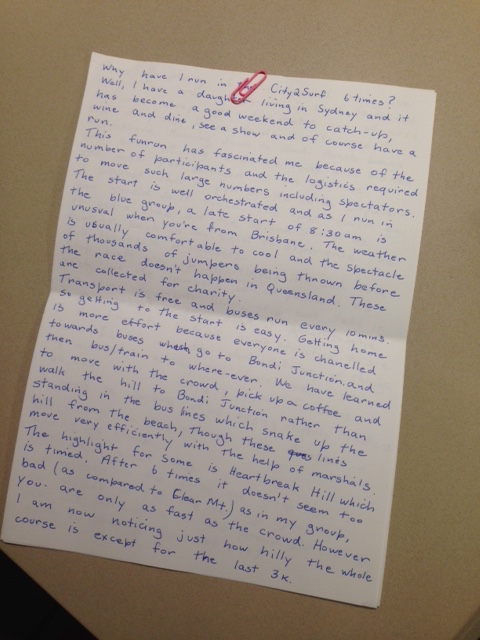 Why have I run in the City2Surf 6 times?
Well, I have a daughter living in Sydney and it
has become a good weekend to catch-up,
wine and dine, see a show and of course have a
run.
This funrun has fascinated me because of the
number of participants and the logistics required
to move such large numbers including spectators.
The start is well orchestrated and as I run in
the blue group, a late start of 8:30am is
unusual when you're from Brisbane. The weather
is usually comfortable to cool and the spectacle
of thousands of jumpers being thrown before
the race doesn't happen in Queensland. These
are collected for charity.
Transport is free and buses run every 10 mins.
so getting to the start is easy. Getting home
is more effort because everyone is chanelled
towards buses which go to Bondi Junction, and
then bus/train to where-ever. We have learned
to move with the crowd, pick up a coffee and
walk the hill to Bondi Junction rather than
standing in the bus lines which snake up the
hill from the beach, Though these lines
move very efficiently with the help of marshals.
The highlight for some is Heartbreak Hill which
is timed. After 6 times it doesn't seem too
bad (as compared to Clear Mt.) as in my group,
you are only as fast as the crowd. However
I am now noticing just how hilly the whole
course is except for the last 3k.